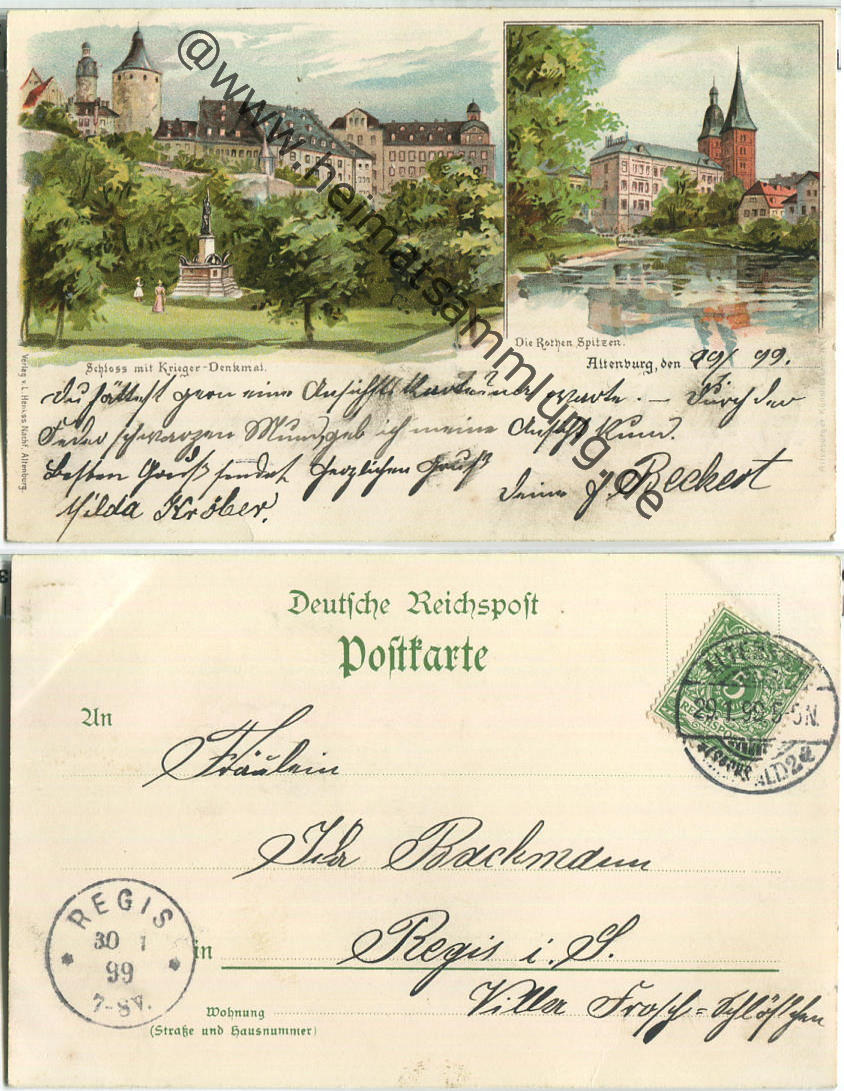 @www.heimatsammlung.de
Schloss mit Krieger-Denkmal.
Die Rothen Spitzen.
Altenburg, den 29/1 99.
Verlag v. L. Henkss Nachf. Altenburg.
Du hättest gern eine Ansichts Karte warte. — Durch der
Feder schwarzen Mund geb ich meine Ansicht kund.
Besten Gruß sendet herzlichen Gruß
Hilda Kröber.
Deine J. Beckert
Deutsche Reichspost
Postkarte
An
Fräulein
Ida Bachmann
in
Regis i. S.
Wohnung
(Straße und Hausnummer)
Villa Frosch=Schlößchen
REGIS
30 1
99
7-8V.
29.1.99 5-6N.
5